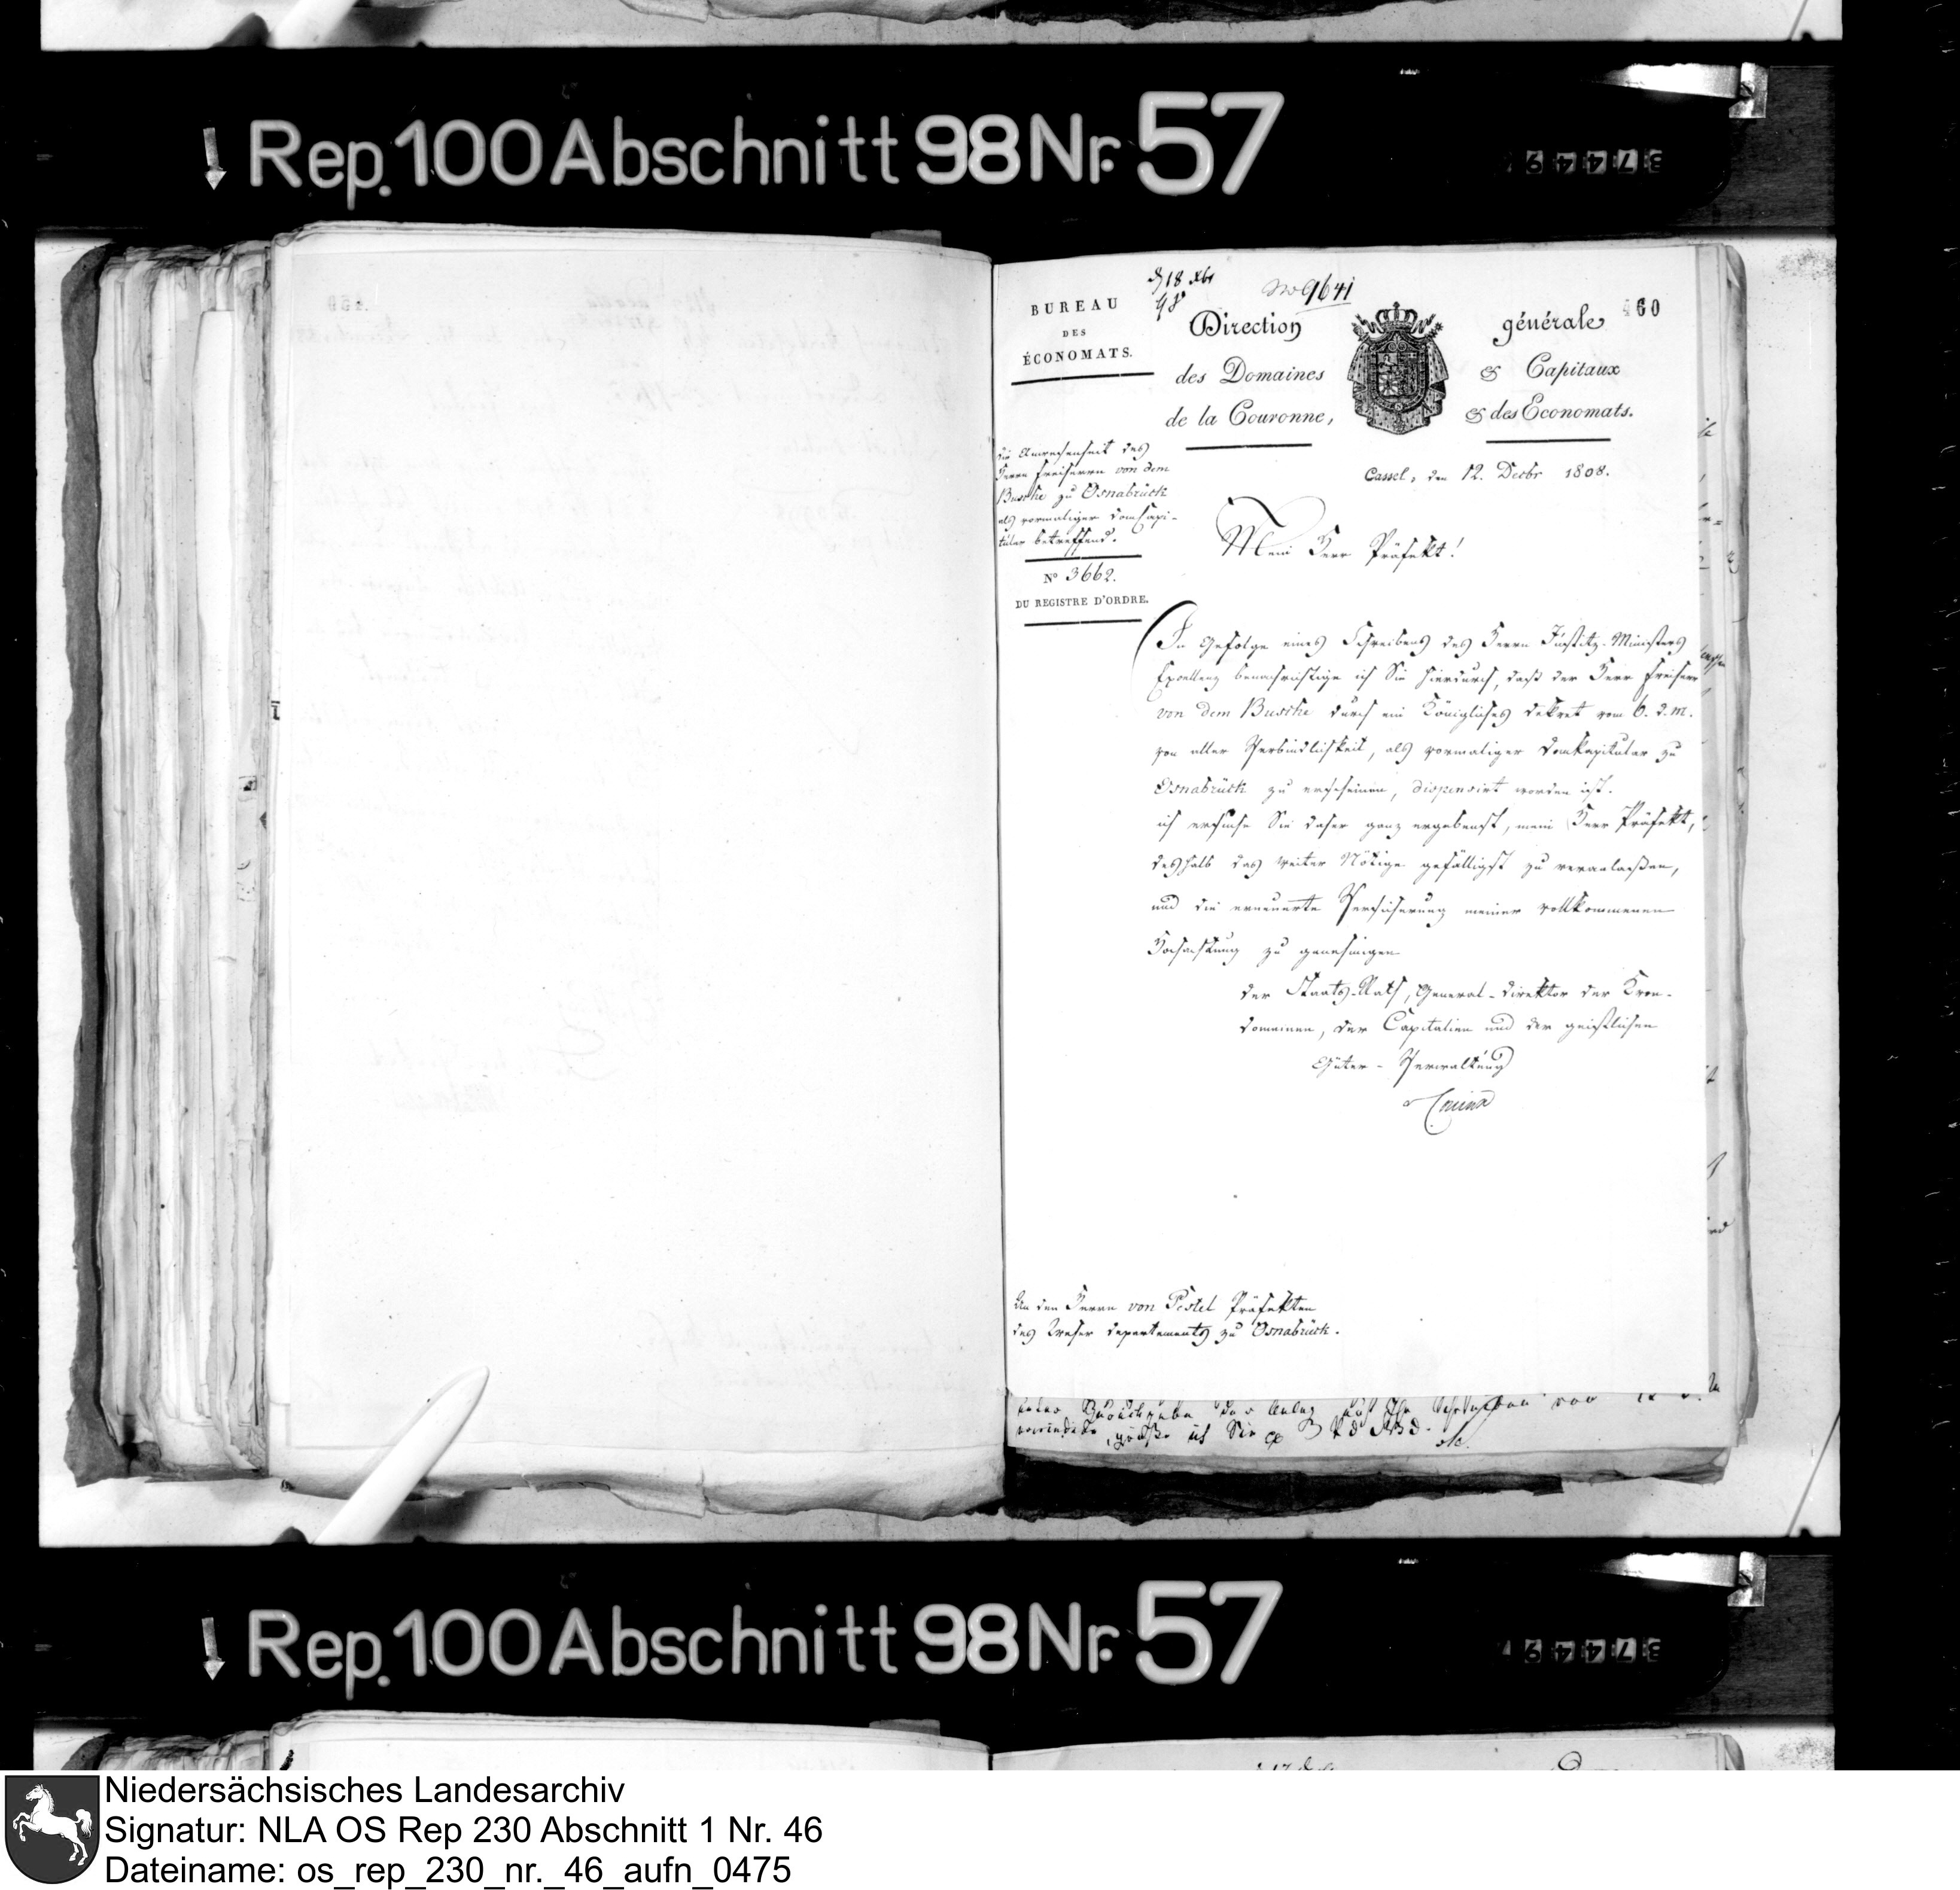 Rep. 100 Abschnitt 98 Nr. 57
37449
18 Xbr
No 9641
460
BUREAU
DES
ÉCONOMATS.
Direction générale
des Domaines & Capitaux
de la Couronne, & des Economats.
die Anwesenheit des
Herrn Freiherrn von dem
Bussche zu Osnabrück
als vormaliger DomCapi-
tular betreffend.
N° 3662.
DU REGISTRE D'ORDRE.
Cassel, den 12. Decbr 1808.
Mein Herr Präfekt!
In Gefolge eines Schreibens des Herrn Justitz-Ministers
Excellenz benachrichtige ich Sie hierdurch, daß der Herr Freiherr
von dem Bussche durch ein Königliches Dekret vom 6. d. M.
von aller Verbindlichkeit, als vormaliger Domkapitular zu
Osnabrück zu erscheinen, dispensirt worden ist.
ich ersuche Sie daher ganz ergebenst, mein Herr Präfekt,
deshalb das weiter Nötige gefälligst zu veranlaßen,
und die erneuerte Versicherung meiner vollkommenen
Hochachtung zu genehmigen
der Staats-Rath, General-Direktor der Kron-
domainen, der Capitalien und der geistlichen
Güter-Verwaltung
An den Herrn von Pestel Präfekten
des Weser Departements zu Osnabrück.
Rep. 100 Abschnitt 98 Nr. 57
37449
Niedersächsisches Landesarchiv
Signatur: NLA OS Rep 230 Abschnitt 1 Nr. 46
Dateiname: os_rep_230_nr._46_aufn_0475